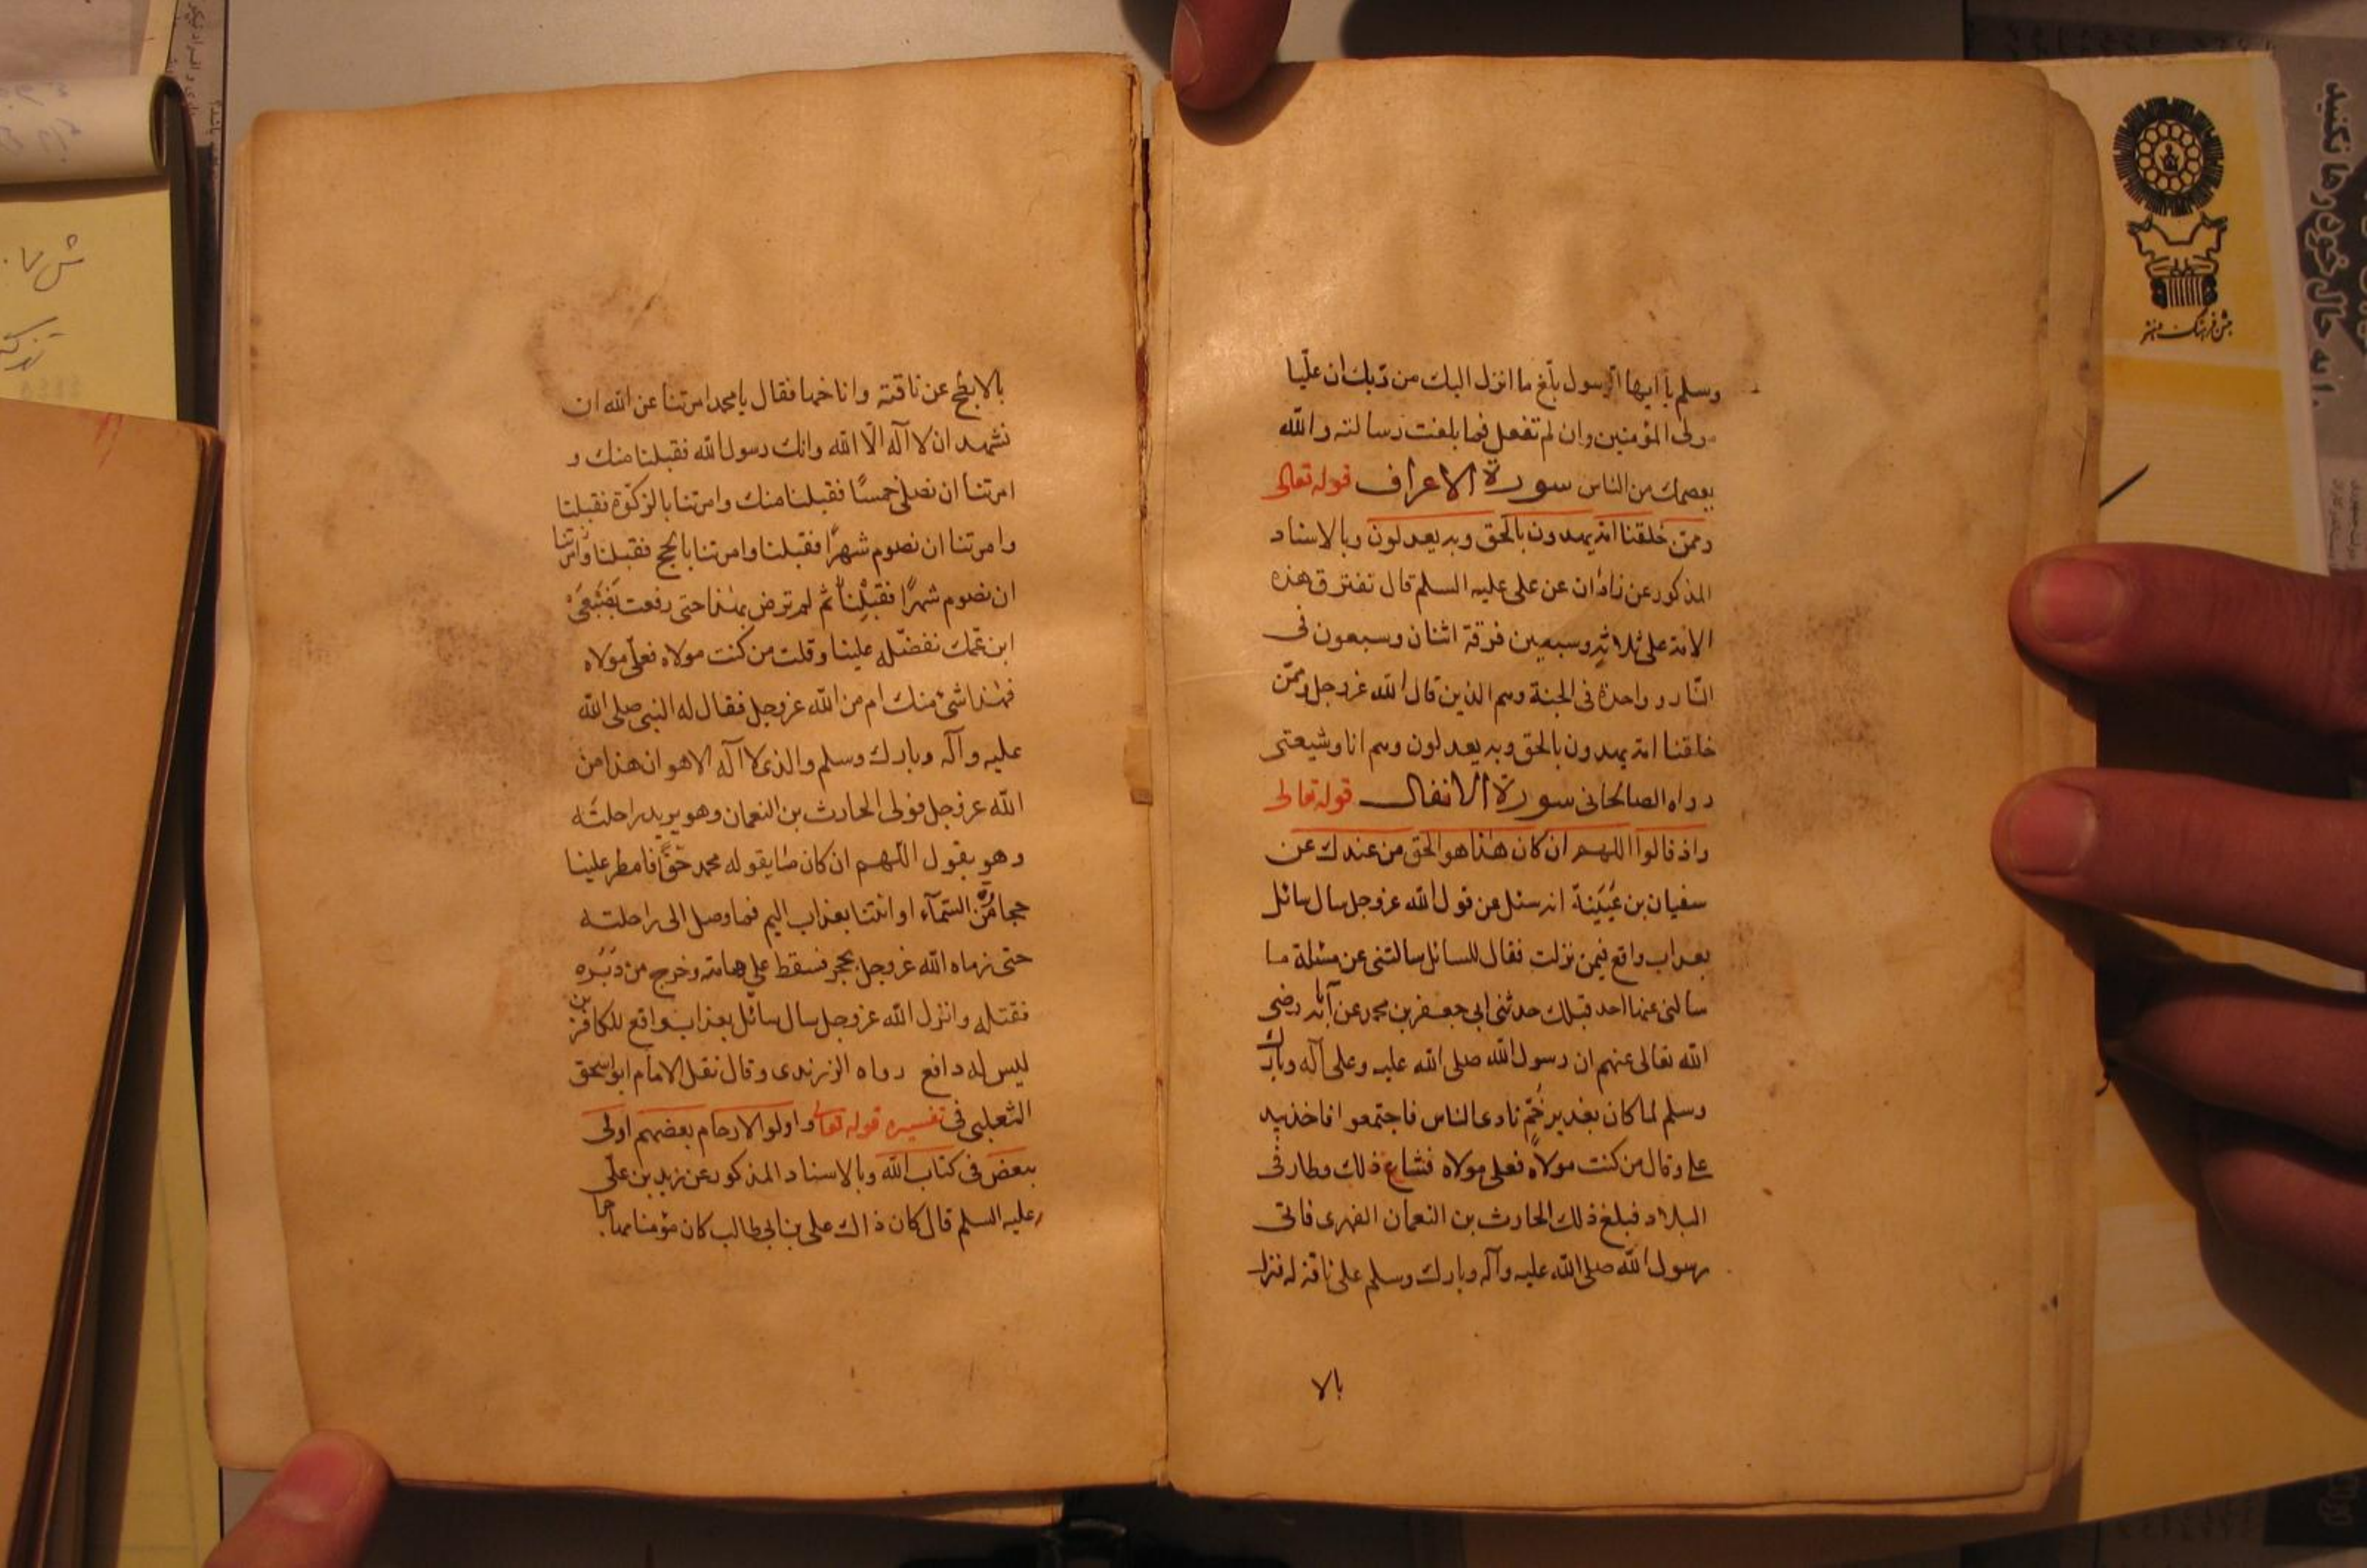 وسلم يا ايها الرسول بلّغ ما انزل اليك من ربك ان عليّا
مولى المؤمنين وان لم تفعل فما بلغت رسالته والله
يعصمك من الناس سورة الاعراف قوله تعالى
وممن خلقنا امة يهدون بالحق وبه يعدلون وبالاسناد
المذكور عن زاذان عن على عليه السلم قال تفترق هذه
الامة على ثلاثة وسبعين فرقة اثنان وسبعون فى
النّار وواحدة فى الجنة وهم الذين قال الله عزوجل وممّن
خلقنا امة يهدون بالحق وبه يعدلون وهم انا وشيعتى
رواه الصالحانى سورة الانفال قوله تعالى
واذ قالوا اللهم ان كان هذا هو الحق من عندك عن
سفيان بن عُيَينة انه سئل عن قول الله عزوجل سال سائل
بعذاب واقع فيمن نزلت فقال للسائل سالتنى عن مسئلة ما
سالنى عنها احد قبلك حدثنى ابى جعفر بن محمد عن آبائه رضى
الله تعالى عنهم ان رسول الله صلى الله عليه وعلى آله وبارك
وسلم لما كان بغدير خمّ نادى الناس فاجتمعوا فاخذ بيد
على وقال من كنت مولاه فعلى مولاه فشاع ذلك وطار فى
البلاد فبلغ ذلك الحارث بن النعمان الفهرى فاتى
رسول الله صلى الله عليه وآله وبارك وسلم على ناقة له فنزل
بالا
بالابطح عن ناقته واناخها فقال يا محمد امرتنا عن الله ان
نشهد ان لا آله الّا الله وانك رسول الله فقبلنا منك و
امرتنا ان نصلى خمسًا فقبلنا منك وامرتنا بالزكوة فقبلنا
وامرتنا ان نصوم شهرًا فقبلنا وامرتنا بالحج فقبلنا وامرتنا
ان نصوم شهرًا فقبلنا ثم لم ترض بهذا حتى رفعت بضبعى
ابن عمّك تفضّله علينا وقلت من كنت مولاه فعلىّ مولاه
فهذا شئ منك ام من الله عزوجل فقال له النبى صلى الله
عليه وآله وبارك وسلم والذى لا آله الا هو ان هذا من
الله عزوجل فولى الحارث بن النعمان وهو يريد راحلته
وهو يقول اللهم ان كان ما يقوله محمد حقًّا فامطر علينا
حجارة من السّمآء او ائتنا بعذاب اليم فما وصل الى راحلته
حتى رماه الله عزوجل بحجر فسقط على هامته وخرج من دبره
فقتله وانزل الله عزوجل سال سائل بعذاب واقع للكافرين
ليس له دافع رواه الزرندى وقال نقل الامام ابواسحق
الثعلبى فى تفسيره قوله تعالى واولو الارحام بعضهم اولى
ببعض فى كتاب الله وبالاسناد المذكور عن زيد بن علّى
عليه السلم قال كان ذاك على بن ابى طالب كان مؤمنا مهاجرا
جشن فرهنگ و هنر